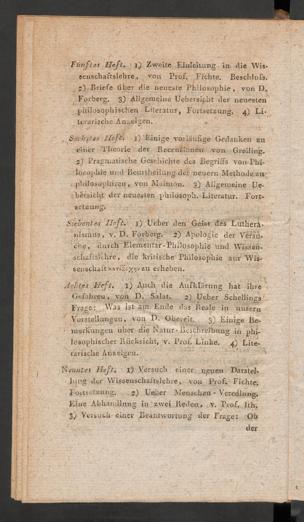 Fünftes Heft. 1) Zweite Einleitung in die Wis-
senschaftslehre, von Prof. Fichte. Beschluss.
2) Briefe über die neueste Philosophie, von D.
Forberg. 3) Allgemeine Uebersicht der neuesten
philosophischen Literatur, Fortsetzung. 4) Li-
terarische Anzeigen.
Sechstes Heft. 1) Einige vorläufige Gedanken zu
einer Theorie der Recensionen von Greiling.
2) Pragmatische Geschichte des Begriffs von Phi-
losophie und Beurtheilung der neuern Methode zu
philosophiren, von Maimon. 3) Allgemeine Ue-
bersicht der neuesten philosoph. Literatur. Fort-
setzung.
Siebentes Heft. 1) Ueber den Geist des Luthera-
nismus, v. D. Forberg. 2) Apologie der Versu-
che, durch Elementar-Philosophie und Wissen-
schaftslehre, die kritische Philosophie zur Wis-
senschaft κατ' εξοχην zu erheben.
Achtes Heft. 1) Auch die Aufklärung hat ihre
Gefahren, von D. Salat. 2) Ueber Schellings
Frage: Was ist am Ende das Reale in unsern
Vorstellungen, von D. Obereit. 3) Einige Be-
merkungen über die Natur-Beschreibung in phi-
losophischer Rücksicht, v. Prof. Linke. 4) Lite-
rarische Anzeigen.
Neuntes Heft. 1) Versuch einer neuen Darstel-
lung der Wissenschaftslehre, von Prof. Fichte,
Fortsetzung. 2) Ueber Menschen-Veredlung.
Eine Abhandlung in zwei Reden, v. Prof. Ith.
3) Versuch einer Beantwortung der Frage: Ob
der